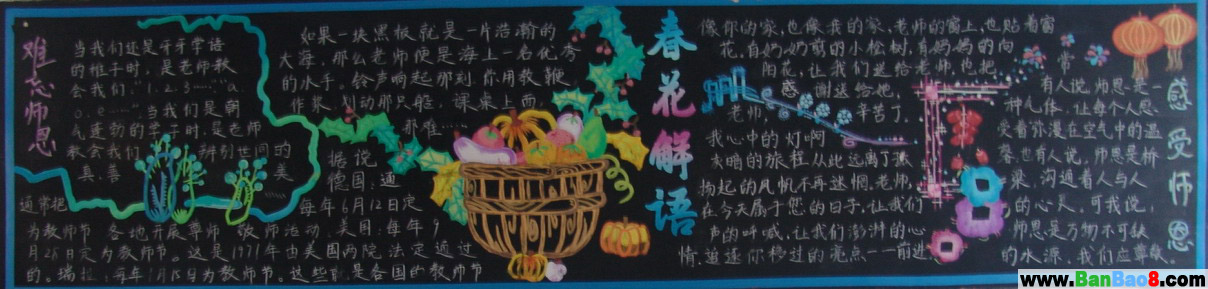 难忘师恩
当我们还是牙牙学语
的稚子时，是老师教
会我们，“1.2.3……”“a
o.e……”当我们是朝
气蓬勃的学子时，是老师
教会我们 辨别世间的
真、善 美
如果一块黑板就是一片浩瀚的
大海，那么老师便是海上一名优秀
的水手。铃声响起那刻 你用教鞭
作桨，划动那只船，课桌上面
那难……
据说
德国：通
通常把 每年6月12日定
为教师节 各地开展尊师 敬师活动 美国：每年9
月28日定为教师节。这是1971年由美国两院 法定通过
的。瑞 每年 月15日为教师节。这些 是各国的教师节
春花解语
像你的家，也像我的家，老师的窗上，也贴着窗
花，有奶奶剪的小松树，有妈妈的向
阳花，让我们送给老师，也把
感谢送给她，
老师， 辛苦了。
我心中的灯啊
灰暗的旅程从此远离了孤
扬起的风帆不再迷惘，老师，
在今天属于您的日子，让我们
声的呼喊，让我们澎湃的心
情，追逐你移过的亮点——前进
感受师恩
常 有人说，师恩是一
种气体，让每个人感
受着弥漫在空气中的温
馨，也有人说，师恩是桥
梁，沟通着人与人
的心灵，可我说，
师恩是万物不可缺
的水源，我们应尊敬。
www.BanBao8.com